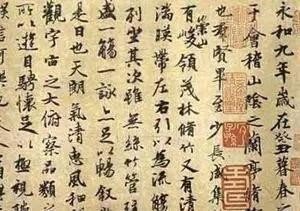 永和九年歲在癸丑暮春之
于會稽山陰之蘭亭
也群賢畢至少長咸集
崇山
有峻領茂林脩竹又有清
湍暎帶左右引以為流
列坐其次雖無絲竹管
盛一觴一詠亦足以暢敘
是日也天朗氣清惠風和
觀宇宙之大俯察品類
所以遊目騁懷足以極視